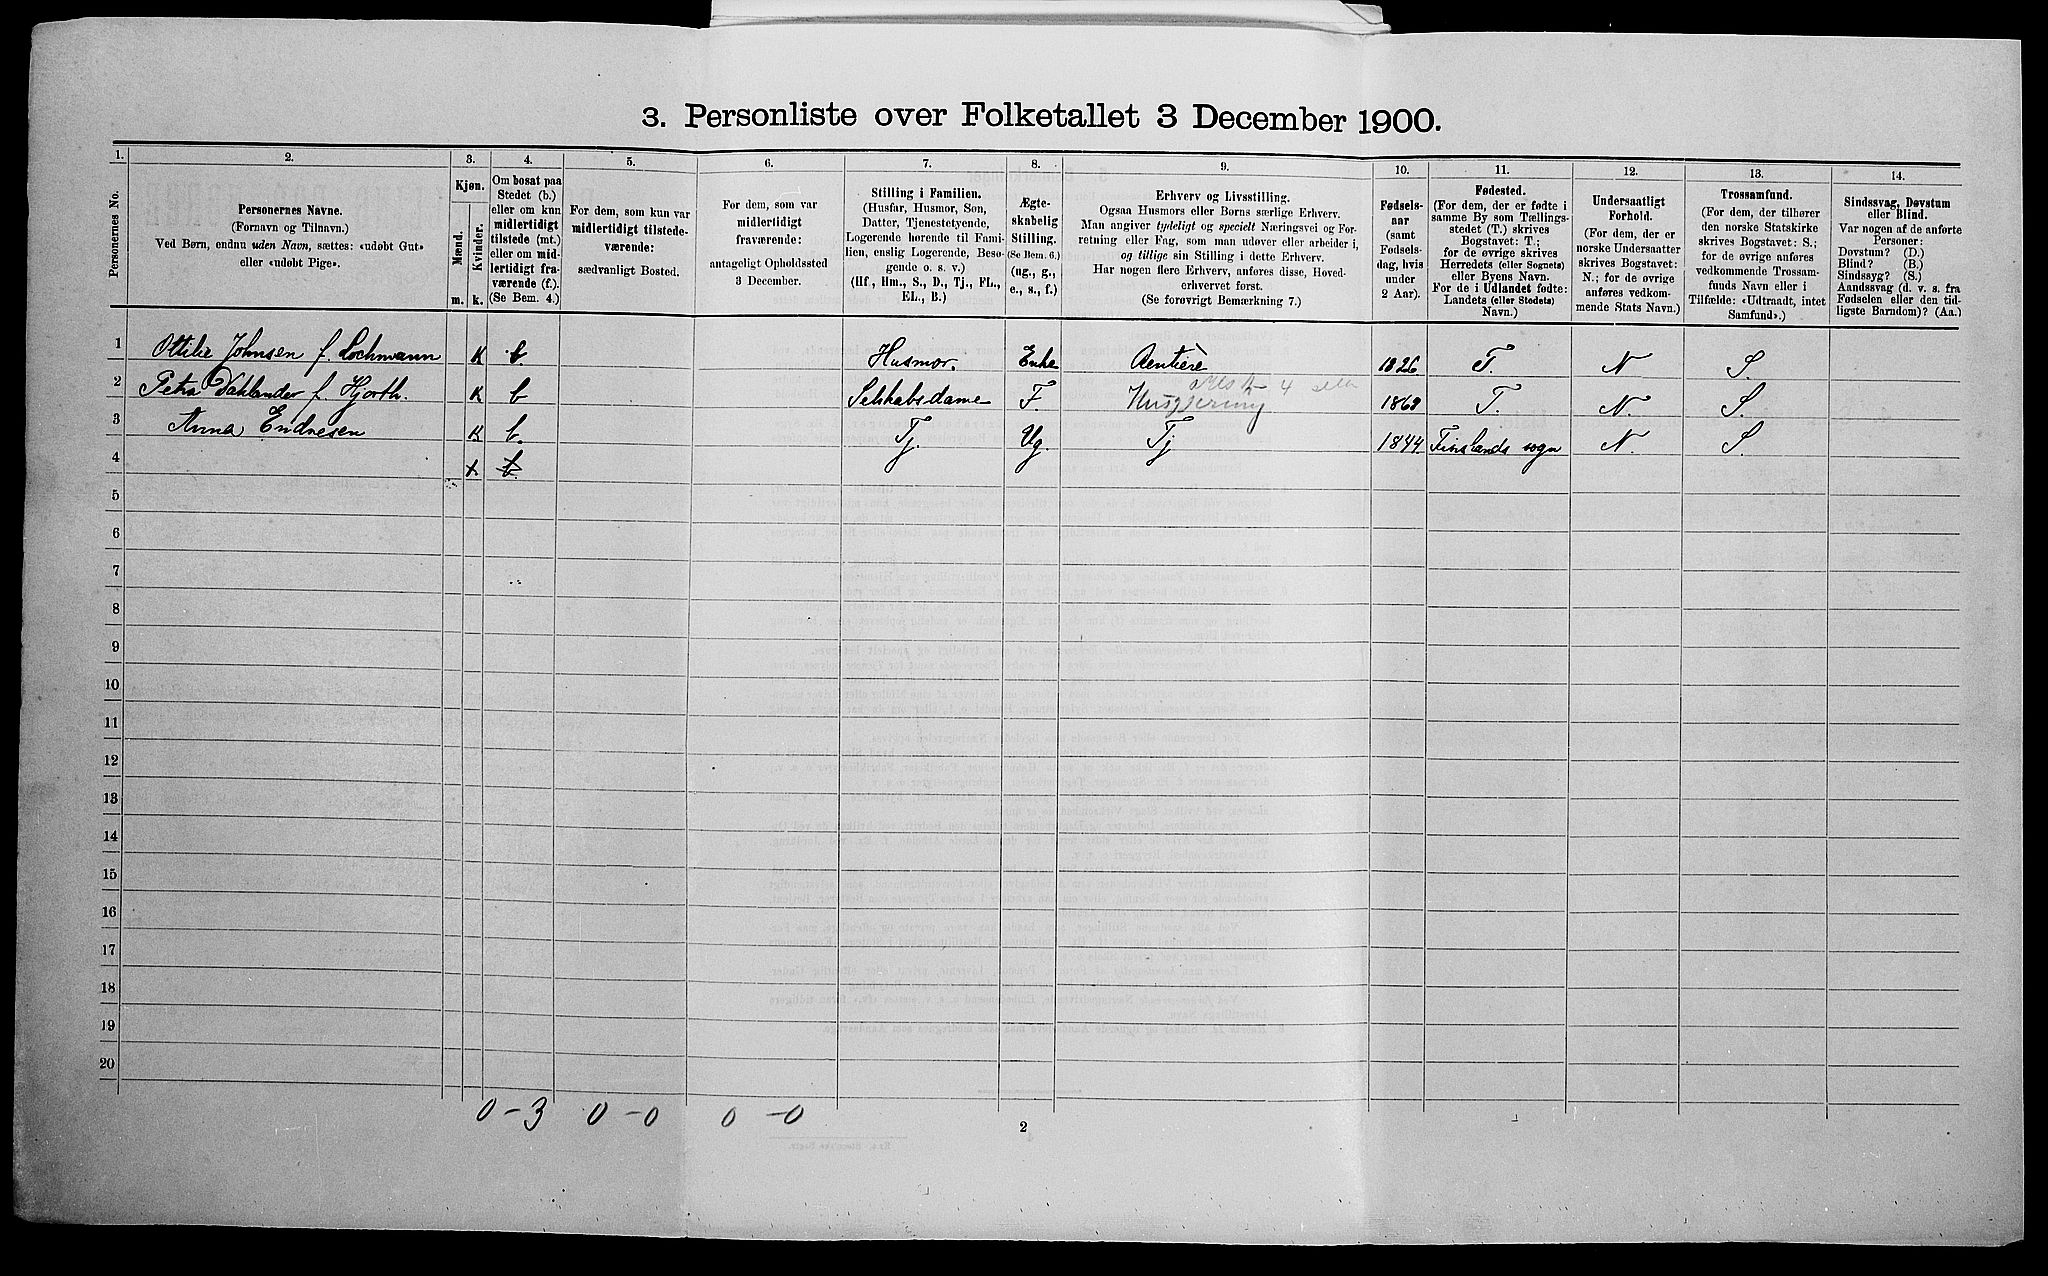 3. Personliste over Folketallet 3 December 1900.
1. 2. 3. 4. 5. 6. 7. 8. 9. 10. 11. 12. 13. 14.
Personernes No.
Personernes Navne.
(Fornavn og Tilnavn.)
Ved Børn, endnu uden Navn, sættes: «udøbt Gut»
eller «udøbt Pige».
Kjøn.
Mænd.
Kvinder.
m. k.
Om bosat paa
Stedet (b.)
eller om kun
midlertidigt
tilstede (mt.)
eller om mid-
lertidigt fra-
værende (f.)
(Se Bem. 4.)
For dem, som kun var
midlertidigt tilstede-
værende:
sædvanligt Bosted.
For dem, som var
midlertidigt
fraværende:
antageligt Opholdssted
3 December.
Stilling i Familien.
(Husfar, Husmor, Søn,
Datter, Tjenestetyende,
Logerende hørende til Fami-
lien, enslig Logerende, Besø-
gende o. s. v.)
(Hf., Hm., S., D., Tj., FL.,
EL., B.)
Ægte-
skabelig
Stilling.
(Se Bem. 6.)
(ug., g.,
e., s., f.)
Erhverv og Livsstilling.
Ogsaa Husmors eller Børns særlige Erhverv.
Man angiver tydeligt og specielt Næringsvei og For-
retning eller Fag, som man udøver eller arbeider i,
og tillige sin Stilling i dette Erhverv.
Har nogen flere Erhverv, anføres disse, Hoved-
erhvervet først.
(Se forøvrigt Bemærkning 7.)
Fødsels-
aar
(samt
Fødsels-
dag, hvis
under
2 Aar).
Fødested.
(For dem, der er fødte i
samme By som Tællings-
stedet (T.) skrives
Bogstavet: T.;
for de øvrige skrives
Herredets (eller Sognets)
eller Byens Navn.
For de i Udlandet fødte:
Landets (eller Stedets)
Navn.)
Undersaatligt
Forhold.
(For dem, der er
norske Undersaatter
skrives Bogstavet:
N.; for de øvrige
anføres vedkom-
mende Stats Navn.)
Trossamfund.
(For dem, der tilhører
den norske Statskirke
skrives Bogstavet: S.;
for de øvrige anføres
vedkommende Trossam-
funds Navn eller i
Tilfælde: «Udtraadt, intet
Samfund».)
Sindssvag, Døvstum
eller Blind.
Var nogen af de anførte
Personer:
Døvstum? (D.)
Blind? (B.)
Sindssyg? (S.)
Aandssvag (d. v. s. fra
Fødselen eller den tid-
ligste Barndom)? (Aa.)
1 Ottilie Johnsen f. Lochmann K b Husmor. Enke Rentière 1826 T. N S.
2 Petra Dahlander f. Hjorth. K b Selskabsdame F. Husgjerning 1863 T. N. S.
3 Anna Endresen K b. Tj. Ug. Tj 1844. Finslands sogn N. S.
4 K b.
5
6
7
8
9
10
11
12
13
14
15
16
17
18
19
20
0 - 3 0 - 0 0 - 0
2